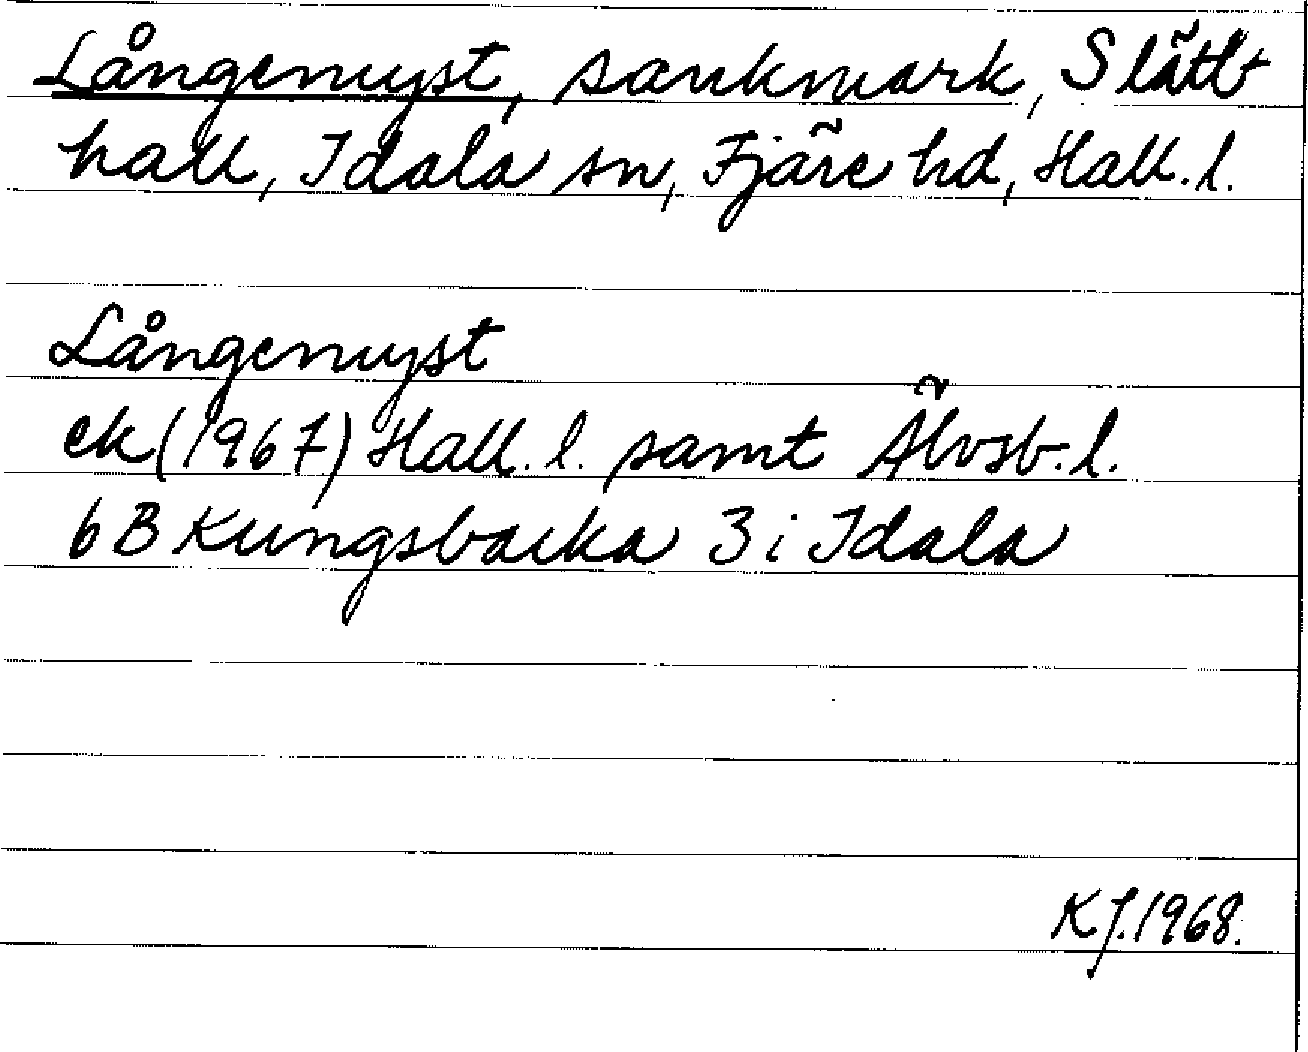 Långemyst, sankmark, Slätt
hall, Idala sn, Fjäre hd, Hall. l.
Långemyst
ek (1967) Hall. l. samt Älvsb. l.
6 B Kungsbacka 3 i Idala
KJ. 1968.